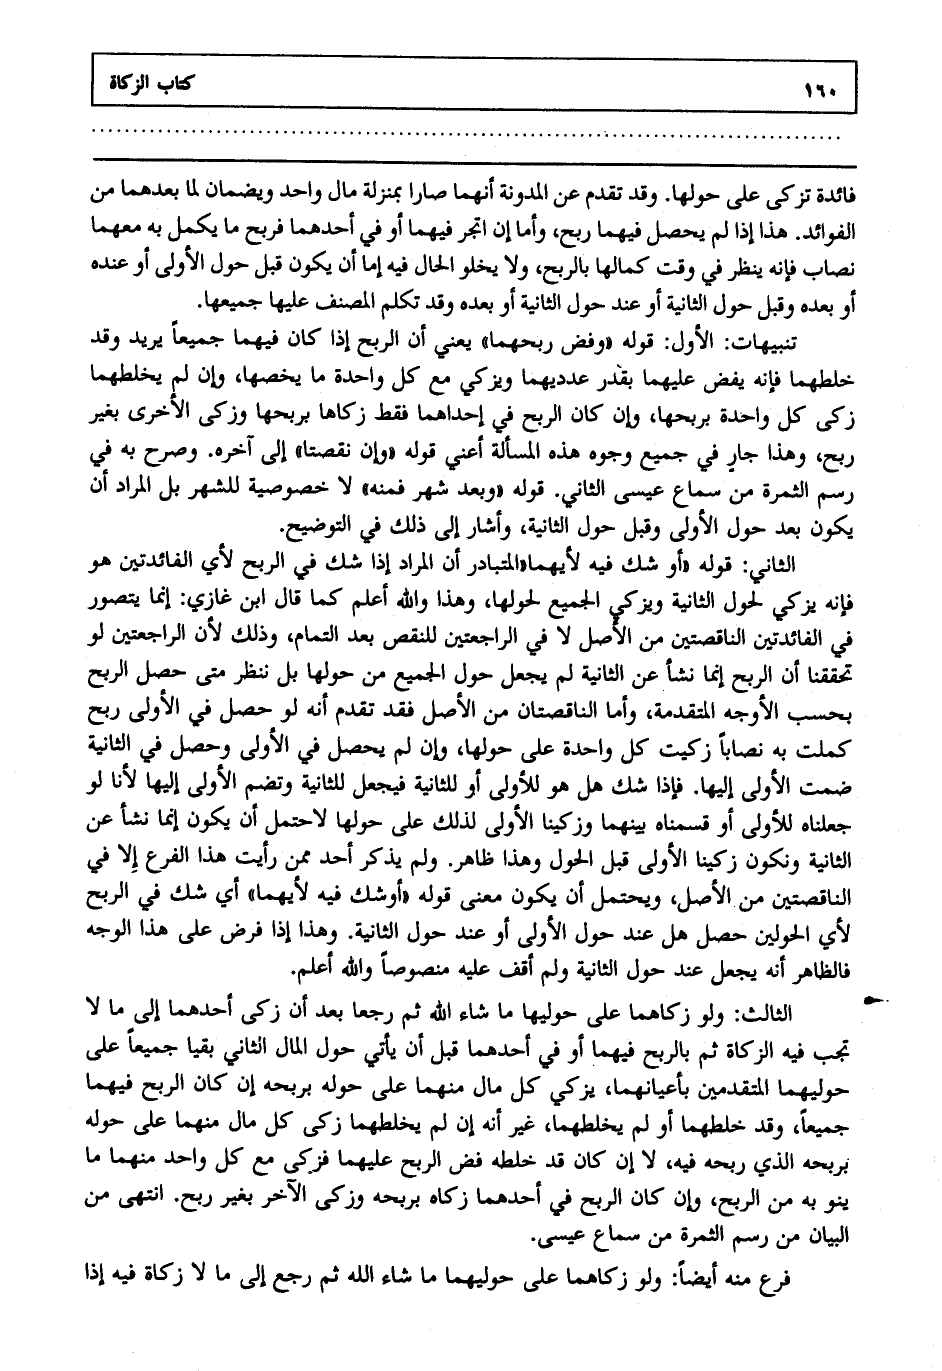 ١٦٠
كتاب الزكاة
فائدة تزكى على حولها. وقد تقدم عن المدونة أنهما صارا بمنزلة مال واحد ويضمان لما بعدهما من
الفوائد. هذا إذا لم يحصل فيهما ربح، وأما إن اتجر فيهما أو في أحدهما فربح ما يكمل به معهما
نصاب فإنه ينظر في وقت كمالها بالربح، ولا يخلو الحال فيه إما أن يكون قبل حول الأولى أو عنده
أو بعده وقبل حول الثانية أو عند حول الثانية أو بعده وقد تكلم المصنف عليها جميعها.
تنبيهات: الأول: قوله «وفض ربحهما» يعني أن الربح إذا كان فيهما جميعاً يريد وقد
خلطهما فإنه يفض عليهما بقدر عدديهما ويزكي مع كل واحدة ما يخصها، وإن لم يخلطهما
زكى كل واحدة بربحها، وإن كان الربح في إحداهما فقط زكاها بربحها وزكى الأخرى بغير
ربح، وهذا جارٍ في جميع وجوه هذه المسألة أعني قوله «وإن نقصتا» إلى آخره. وصرح به في
رسم الثمرة من سماع عيسى الثاني. قوله «وبعد شهر فمنه» لا خصوصية للشهر بل المراد أن
يكون بعد حول الأولى وقبل حول الثانية، وأشار إلى ذلك في التوضيح.
الثاني: قوله «أو شك فيه لأيهما»المتبادر أن المراد إذا شك في الربح لأي الفائدتين هو
فإنه يزكي لحول الثانية ويزكي الجميع لحولها، وهذا والله أعلم كما قال ابن غازي: إنما يتصور
في الفائدتين الناقصتين من الأصل لا في الراجعتين للنقص بعد التمام، وذلك لأن الراجعتين لو
تحققنا أن الربح إنما نشأ عن الثانية لم يجعل حول الجميع من حولها بل ننظر متى حصل الربح
بحسب الأوجه المتقدمة، وأما الناقصتان من الأصل فقد تقدم أنه لو حصل في الأولى ربح
كملت به نصاباً زكيت كل واحدة على حولها، وإن لم يحصل في الأولى وحصل في الثانية
ضمت الأولى إليها. فإذا شك هل هو للأولى أو للثانية فيجعل للثانية وتضم الأولى إليها لأنا لو
جعلناه للأولى أو قسمناه بينهما وزكينا الأولى لذلك على حولها لاحتمل أن يكون إنما نشأ عن
الثانية ونكون زكينا الأولى قبل الحول وهذا ظاهر. ولم يذكر أحد ممن رأيت هذا الفرع إلا في
الناقصتين من الأصل، ويحتمل أن يكون معنى قوله «أوشك فيه لأيهما» أي شك في الربح
لأي الحولين حصل هل عند حول الأولى أو عند حول الثانية. وهذا إذا فرض على هذا الوجه
فالظاهر أنه يجعل عند حول الثانية ولم أقف عليه منصوصاً والله أعلم.
الثالث: ولو زكاهما على حوليها ما شاء الله ثم رجعا بعد أن زكى أحدهما إلى ما لا
تجب فيه الزكاة ثم بالربح فيهما أو في أحدهما قبل أن يأتي حول المال الثاني بقيا جميعاً على
حوليهما المتقدمين بأعيانهما، يزكي كل مال منهما على حوله بربحه إن كان الربح فيهما
جميعاً، وقد خلطهما أو لم يخلطهما، غير أنه إن لم يخلطهما زكى كل مال منهما على حوله
بربحه الذي ربحه فيه، لا إن كان قد خلطه فض الربح عليهما فزكى مع كل واحد منهما ما
ينو به من الربح، وإن كان الربح في أحدهما زكاه بربحه وزكى الآخر بغير ربح. انتهى من
البيان من رسم الثمرة من سماع عيسى.
فرع منه أيضاً: ولو زكاهما على حوليهما ما شاء الله ثم رجع إلى ما لا زكاة فيه إذا